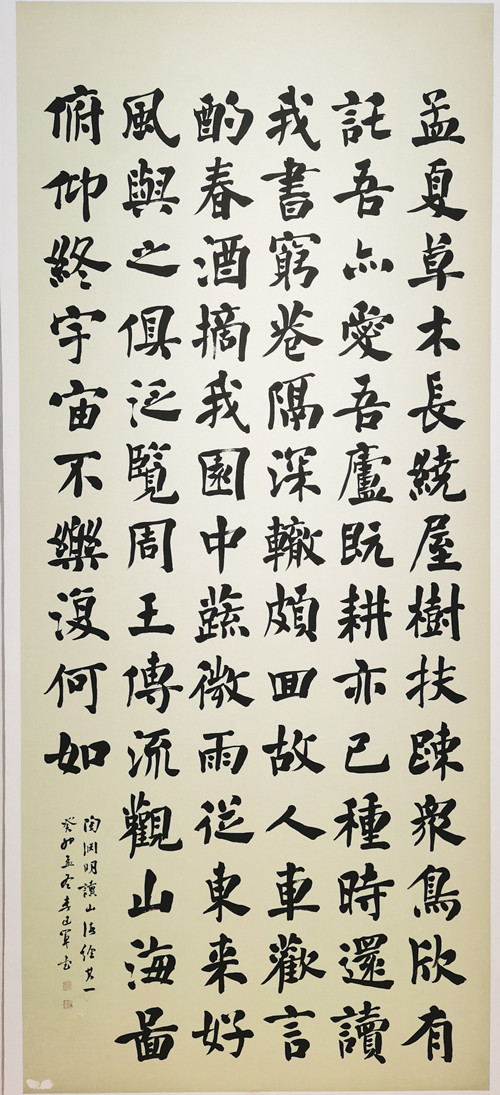 孟夏草木長繞屋樹扶踈衆鳥欣有
託吾亦愛吾廬既耕亦已種時還讀
我書窮巷隔深轍頗回故人車歡言
酌春酒摘我園中蔬微雨從東来好
風與之俱泛覽周王傳流觀山海啚
俯仰終宇宙不樂復何如
陶渊明讀山海經其一
癸卯孟冬李軍书